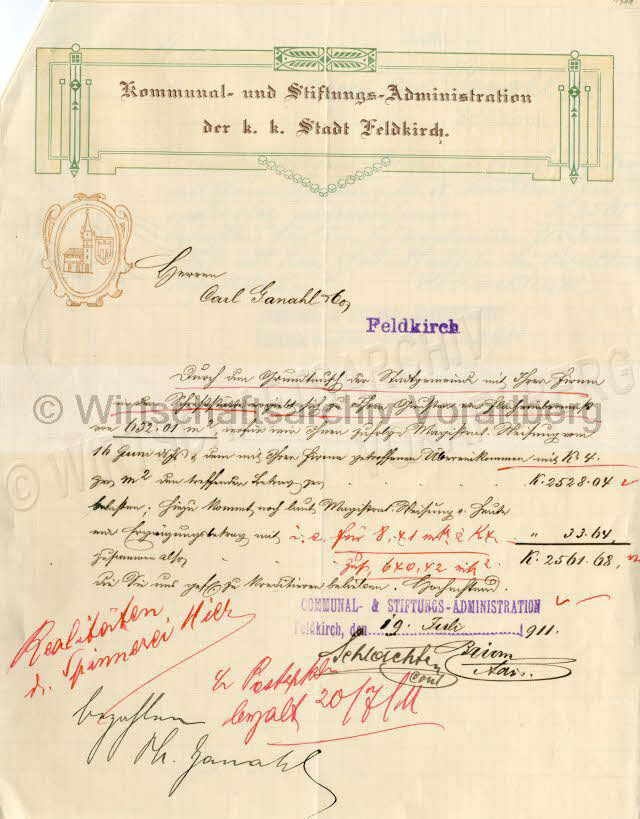 Kommunal- und Stiftungs-Administration
der k. k. Stadt Feldkirch.
Herren
Carl Ganahl & Co,
Feldkirch
Durch den Grundtausch der Stadtgemeinde mit Ihrer Firma
in der ergibt sich zu Ihren Gunsten ein
von 632.01 m², wofür wir Ihnen zufolge Magistrat. Weisung vom
16 Juni dss & dem mit Ihrer Firma getroffenen Übereinkommen mit K 4.
per m² den treffenden Betrag per K. 2528.04
belasten; hiezu kommt noch laut Magistrat. Weisung v. heute
ein Ergänzungsbetrag mit i. e. für 8,41 m² à K 4 " 33.64
zusammen also zus. 640,42 m². K. 2561.68,
die Sie uns gefl. zu kreditieren belieben. Hochachtend
COMMUNAL- & STIFTUNGS-ADMINISTRATION
Feldkirch, den 19. Juli 1911.
Schlachter
Realitäten
d. Spinnerei Hier
bezalt 20/7/11
bezahlen
Ganahl
© Wirtschaftsarchiv Vorarlberg